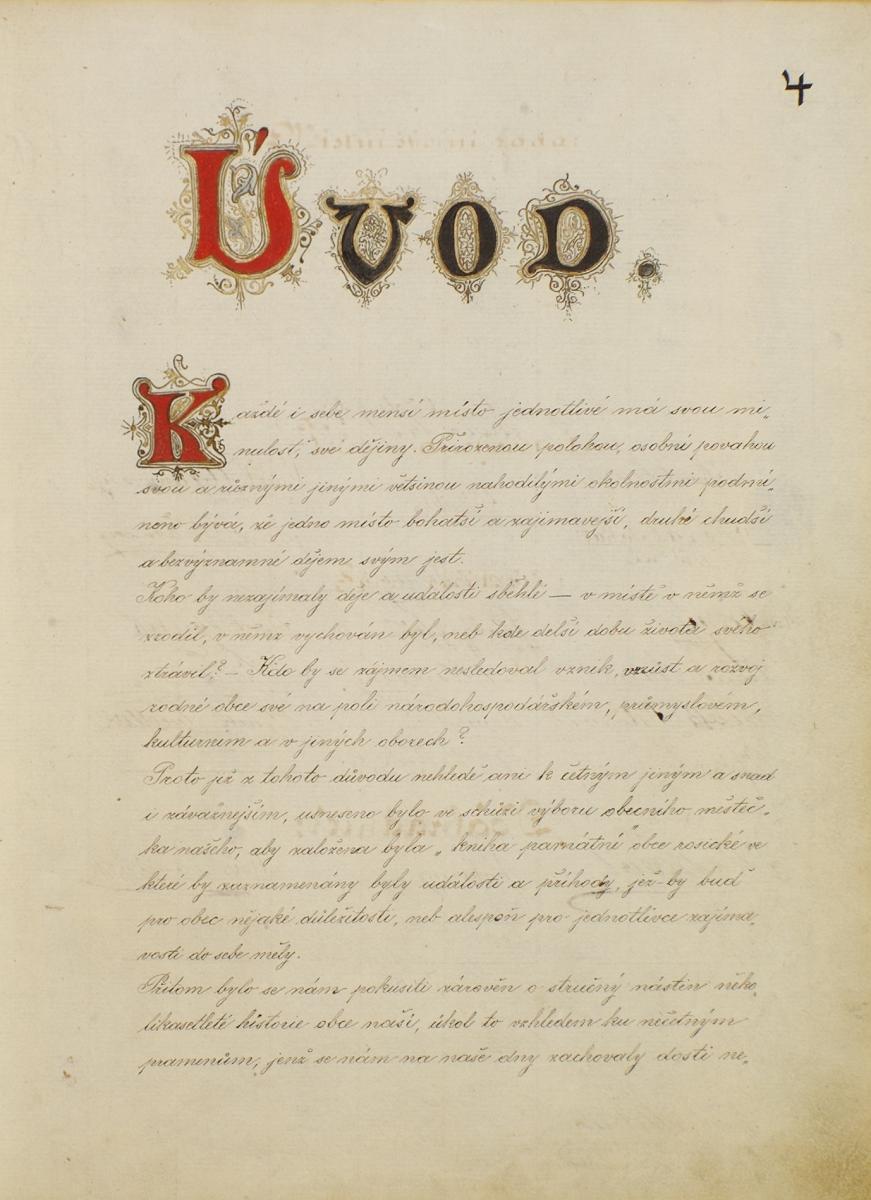 4
ÚVOD.
Každé i sebe menší místo jednotlivé má svou mi„
nulost, své dějiny. Přirozenou polohou, osobní povahou
svou a různými jinými většinou nahodilými okolnostmi podmí„
něno bývá, že jedno místo bohatší a zajímavější, druhé chudší
a bezvýznamné dějem svým jest.
Koho by nezajímaly děje a události sběhlé — v místě v němž se
zrodil, v němž vychován byl, neb kde delší dobu života svého
ztrávil? — Kdo by se zájmem nesledoval vznik, vzrůst a rozvoj
rodné obce své na poli národohospodářském, průmyslovém,
kulturním a v jiných oborech?
Proto již z tohoto důvodu nehledě ani k četným jiným a snad
i závažnejším, usneseno bylo ve schůzi výboru obecního, městeč„
ka našeho, aby založena byla „kniha památní" obce rosické ve
které by zaznamenány byly události a příhody, jež-by buď
pro obec nějaké důležitosti, neb alespoň pro jednotlivce zajíma„
vosti do sebe měly.
Přitom bylo se nám pokusiti zárověn o stručný nástin něko„
likasetleté historie obce naší, úkol to vzhledem ku nečetným
pramenům, jenž se nám na naše dny zachovaly dosti ne„